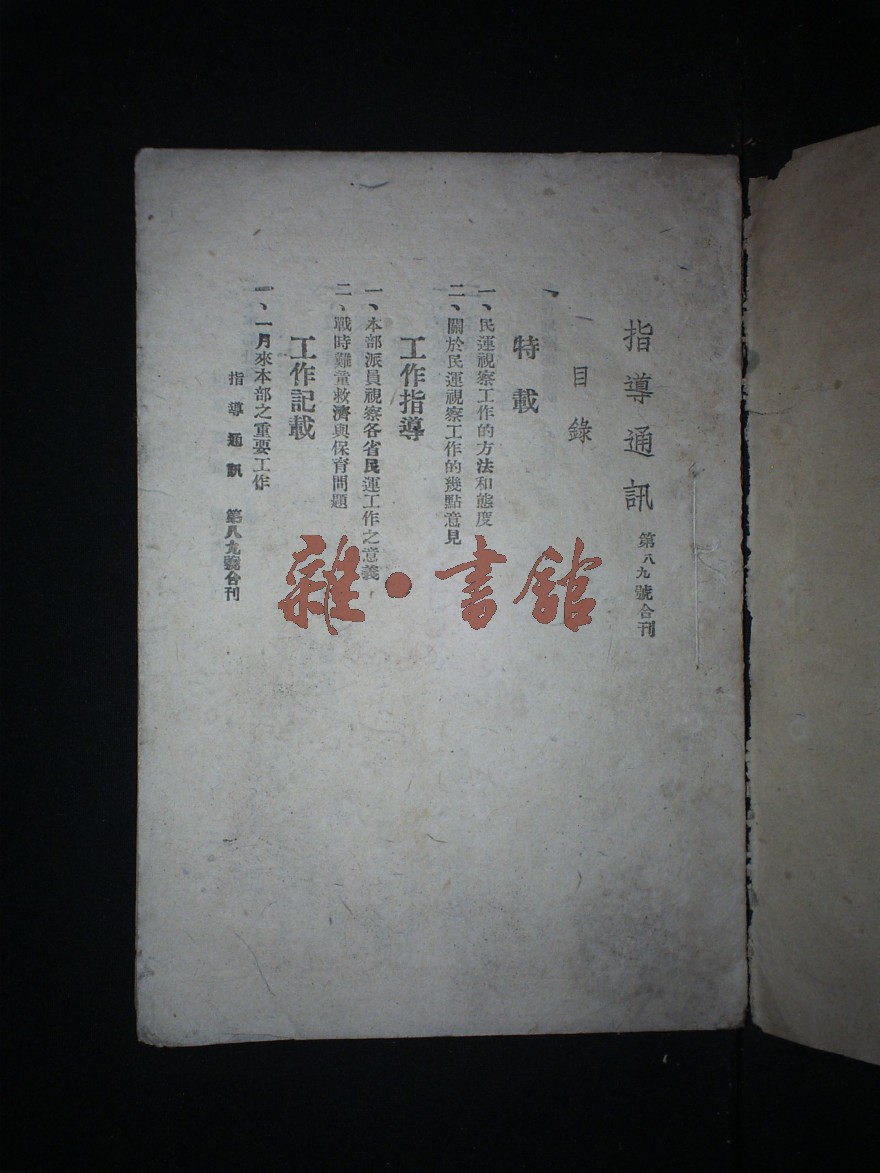 指導通訊 第八九號合刊
目錄
特載
一、民運視察工作的方法和態度
二、關於民運視察工作的幾點意見
工作指導
一、本部派員視察各省民運工作之意義
二、戰時難童救濟與保育問題
工作記載
一、一月來本部之重要工作
指導通訊 第八九號合刊
雜·書館